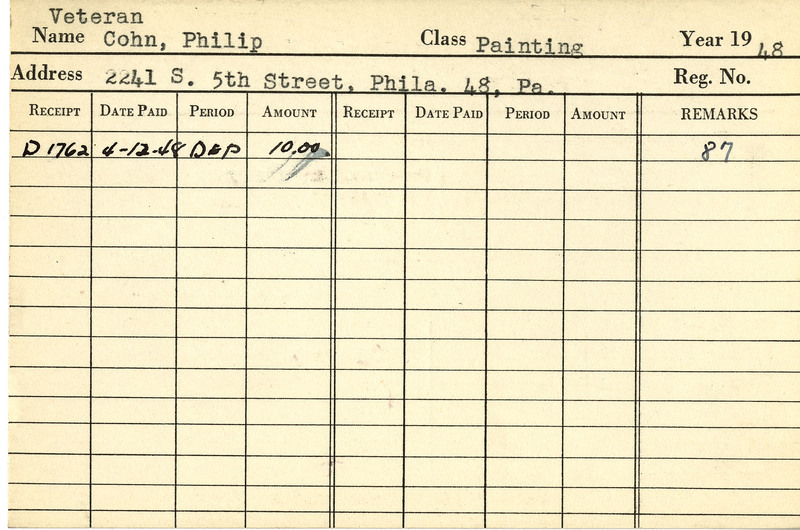 Veteran
Name Cohn, Philip Class Painting Year 19 48
Address 2241 S. 5th Street, Phila. 48, Pa. Reg. No.
RECEIPT DATE PAID PERIOD AMOUNT RECEIPT DATE PAID PERIOD AMOUNT REMARKS
D 1762 4-12-48 DEP 10.00 87